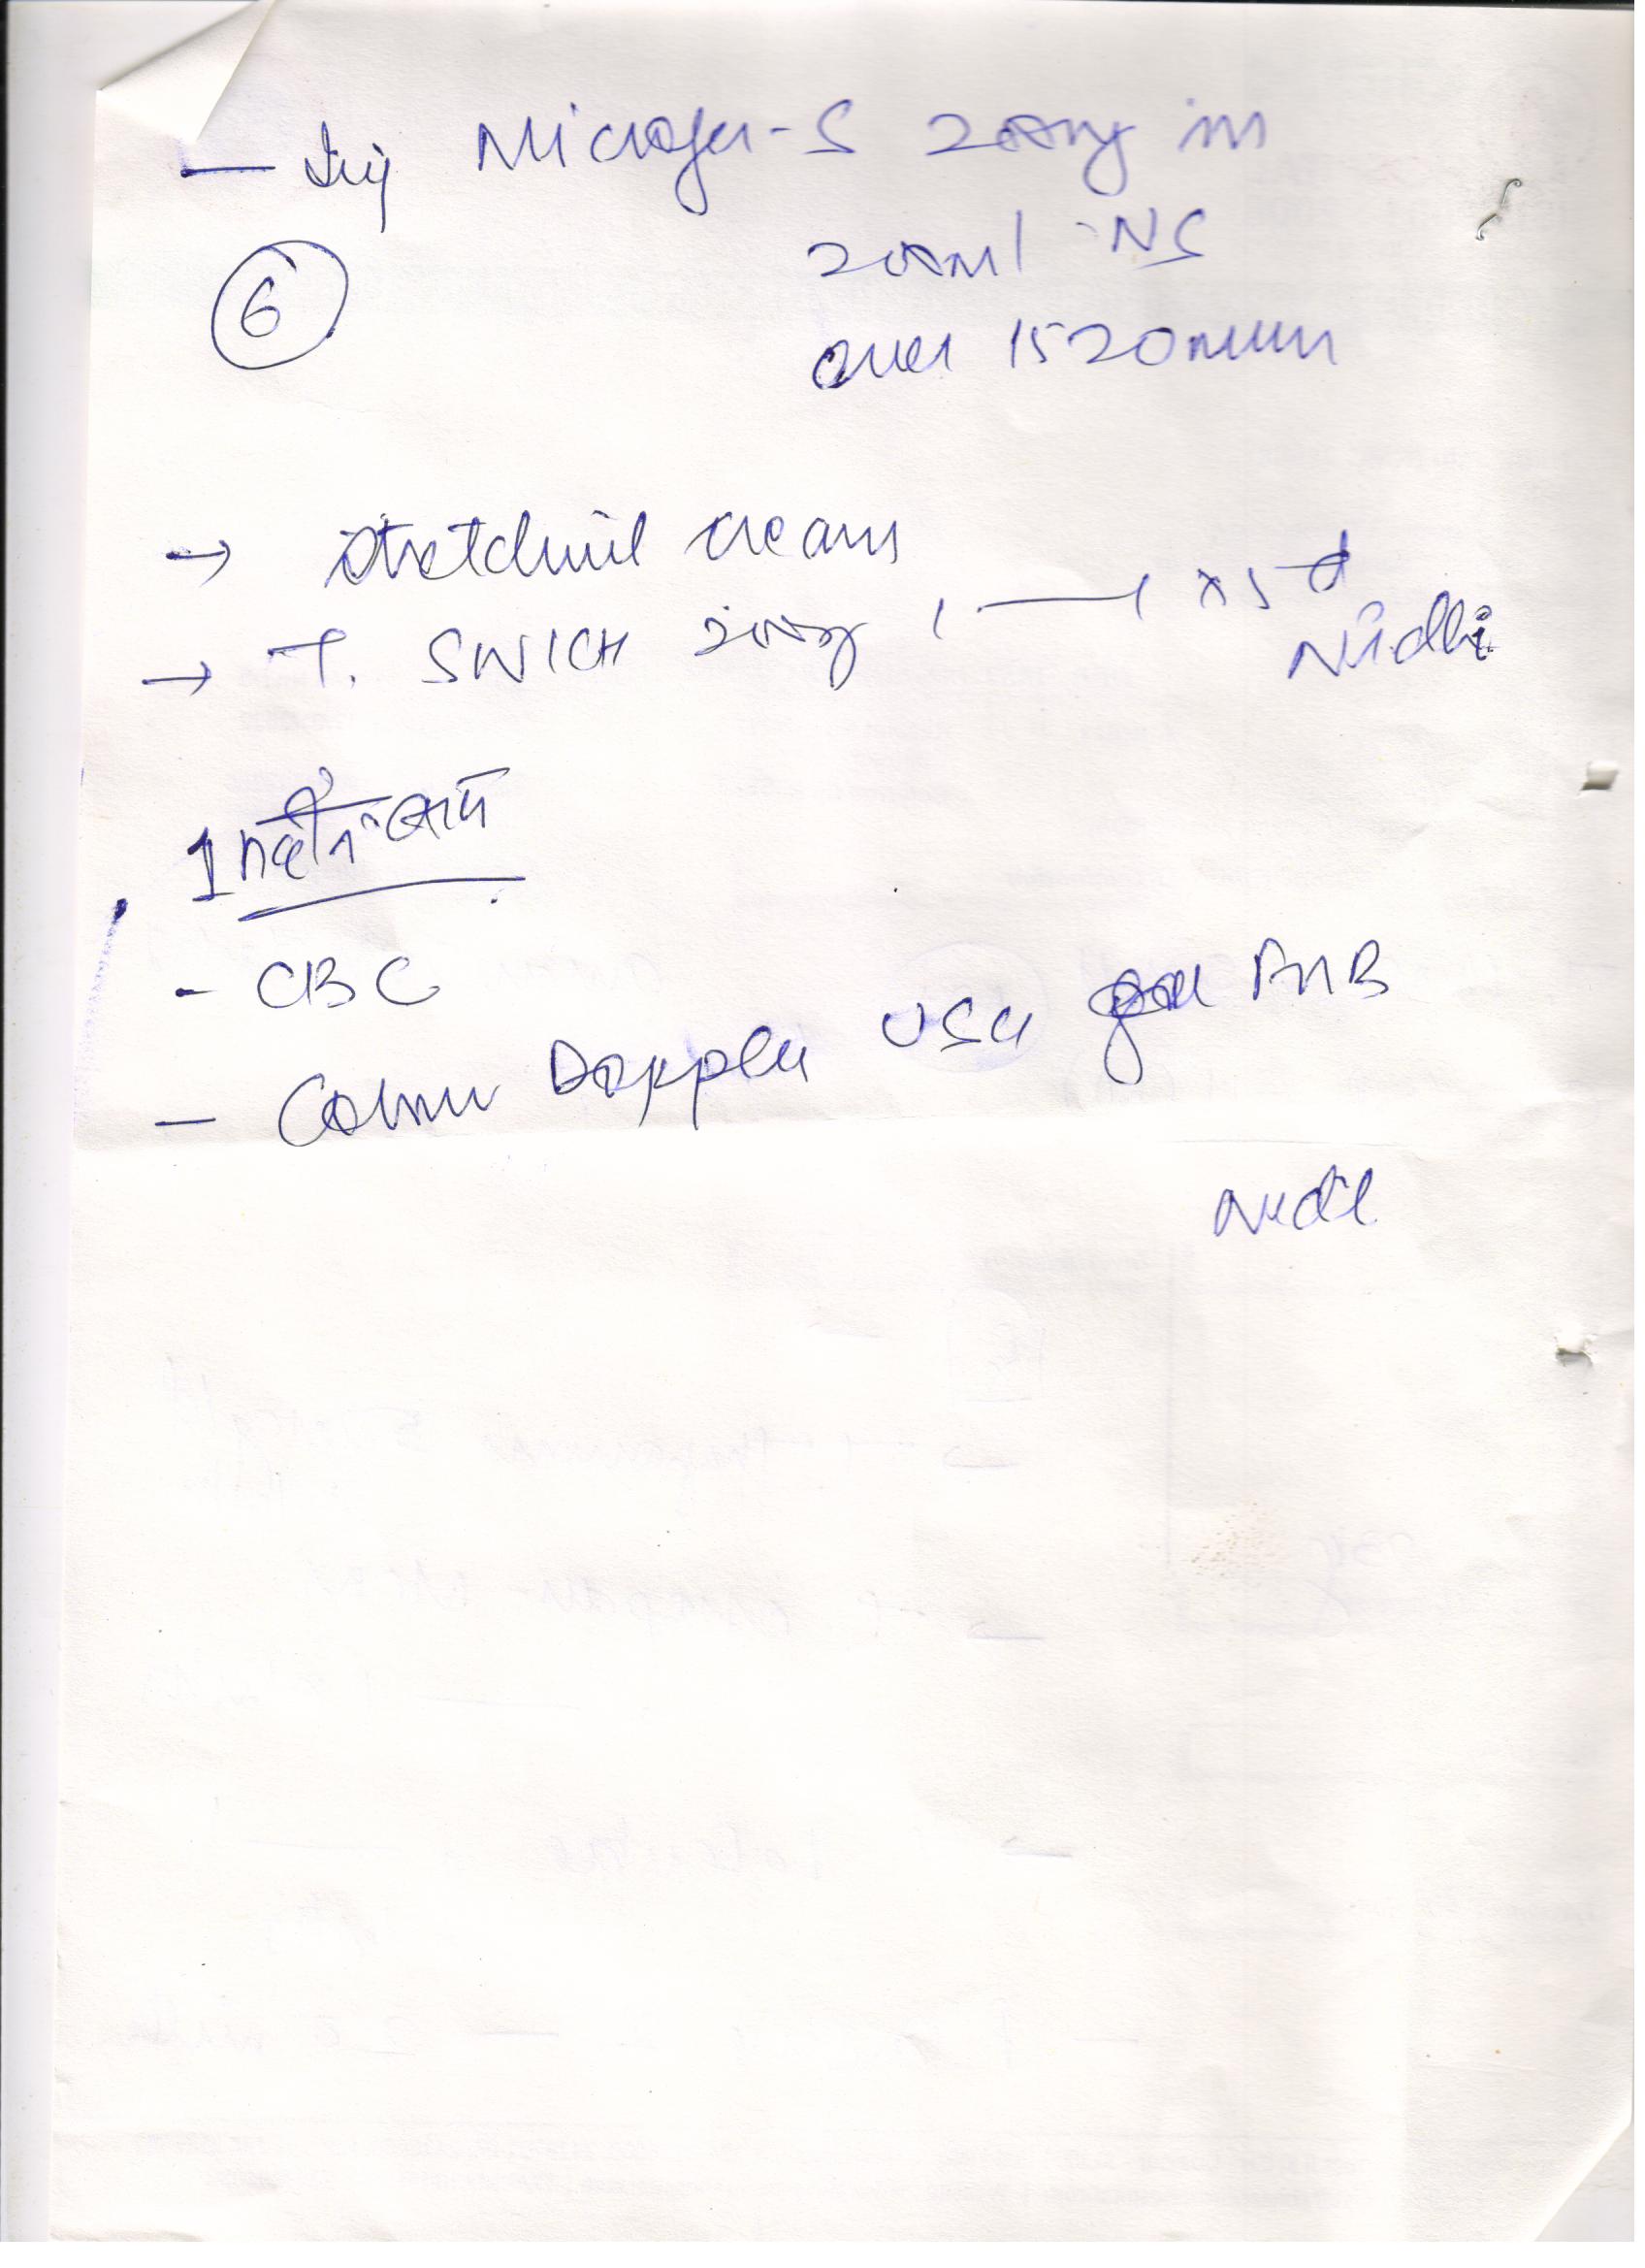 - Inj Microfer-S 200mg in
200ml NS
6
over 15 20 min
→ Stretchnil cream
→ T. SWICH 200mg 1 — 1 x 5 d
Nidhi
- CBC
- Colour Doppler USG for